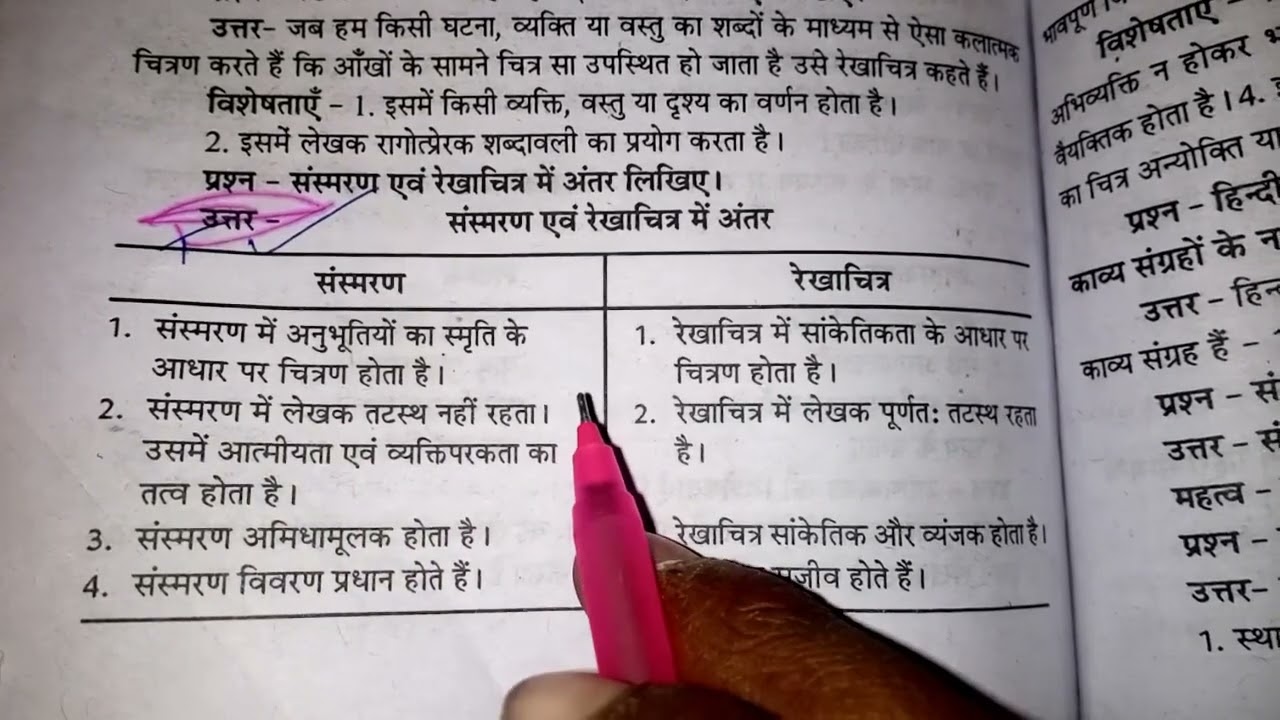 उत्तर- जब हम किसी घटना, व्यक्ति या वस्तु का शब्दों के माध्यम से ऐसा कलात्मक
चित्रण करते हैं कि आँखों के सामने चित्र सा उपस्थित हो जाता है उसे रेखाचित्र कहते हैं।
विशेषताएँ - 1. इसमें किसी व्यक्ति, वस्तु या दृश्य का वर्णन होता है।
2. इसमें लेखक रागोत्प्रेरक शब्दावली का प्रयोग करता है।
प्रश्न - संस्मरण एवं रेखाचित्र में अंतर लिखिए।
उत्तर - संस्मरण एवं रेखाचित्र में अंतर
संस्मरण
1. संस्मरण में अनुभूतियों का स्मृति के
आधार पर चित्रण होता है।
2. संस्मरण में लेखक तटस्थ नहीं रहता।
उसमें आत्मीयता एवं व्यक्तिपरकता का
तत्व होता है।
3. संस्मरण अमिधामूलक होता है।
4. संस्मरण विवरण प्रधान होते हैं।
रेखाचित्र
1. रेखाचित्र में सांकेतिकता के आधार पर
चित्रण होता है।
2. रेखाचित्र में लेखक पूर्णतः तटस्थ रहता
है।
रेखाचित्र सांकेतिक और व्यंजक होता है।
होते हैं।
भावपूर्ण
विशेषताएँ -
अभिव्यक्ति न होकर
वैयक्तिक होता है। 4.
का चित्र अन्योक्ति या
प्रश्न - हिन्दी
काव्य संग्रहों के
उत्तर -
काव्य संग्रह हैं -
प्रश्न -
उत्तर -
महत्व -
प्रश्न -
उत्तर-
1.